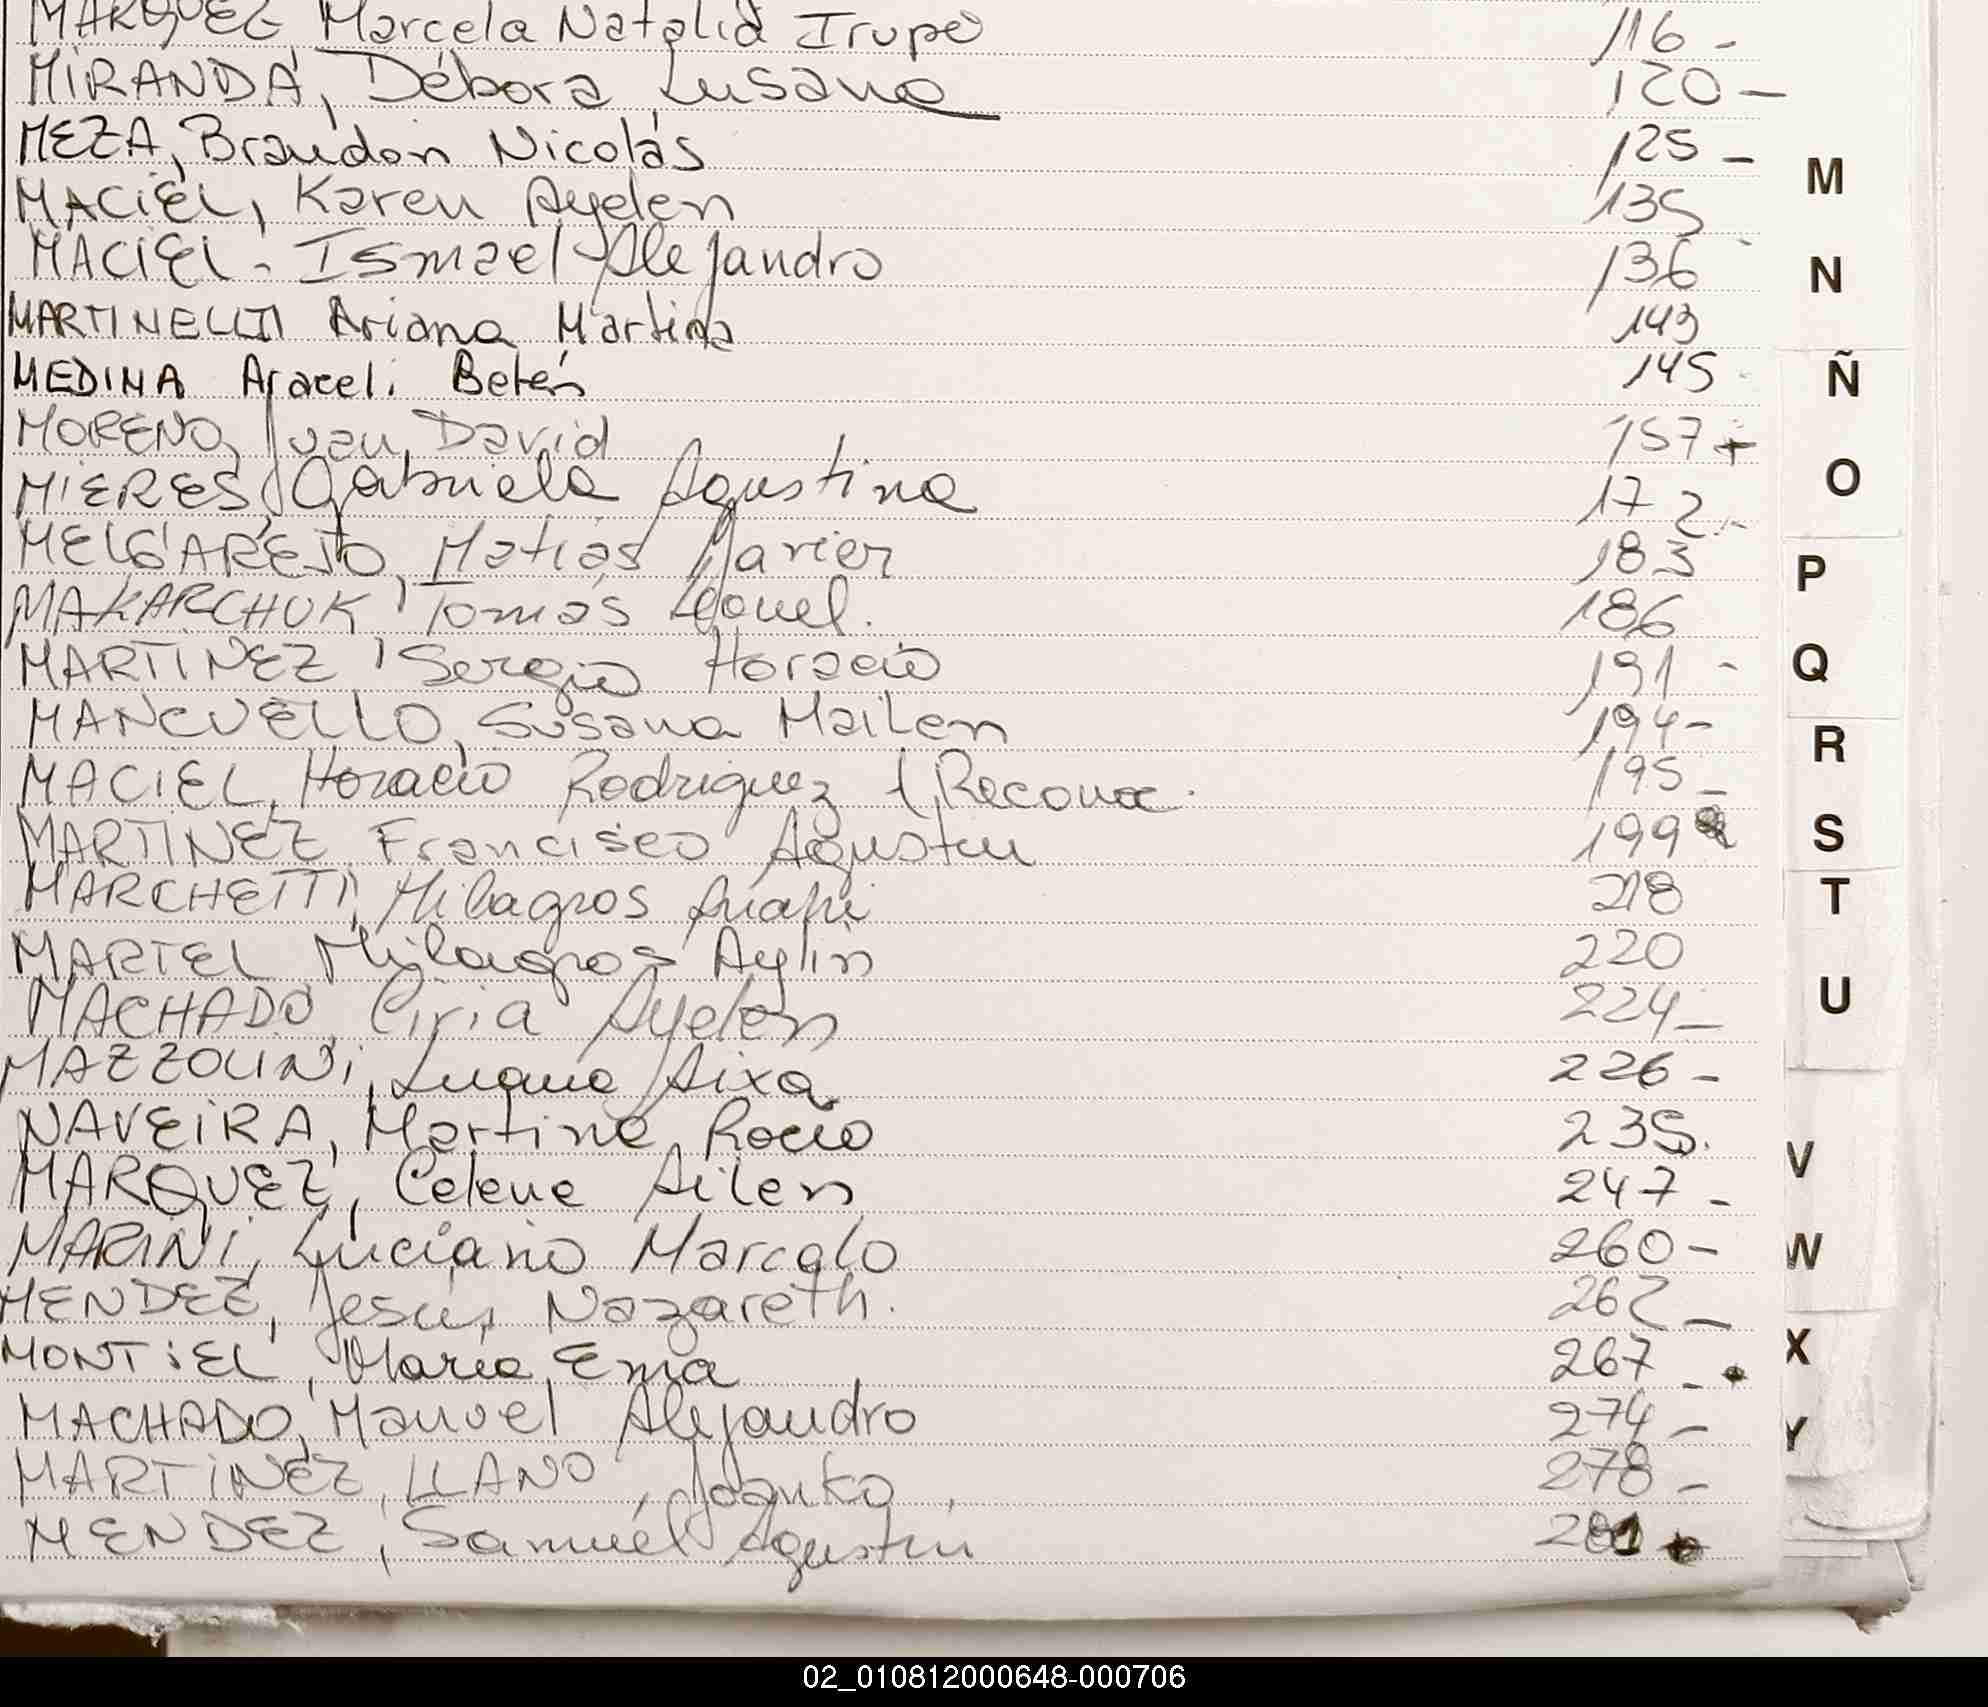 MARQUEZ Marcela Natalia Irupé 116 -
MIRANDA, Débora Lusana 120 -
MEZA, Braudon Nicolás 125 -
MACIEL, Karen Ayelen 135
MACIEL - Ismael Alejandro 136
MARTINELLI Ariana Martina 143
MEDINA Araceli Belén 145
MORENO, Juan David 157 +
MIERES, Gabriela Agustina 172 -
MELGAREJO, Matías Javier 183
MAKARCHUK, Tomás Leonel. 186
MARTINEZ, Sergio Horacio 191 -
MANCUELLO, Susana Mailen 194 -
MACIEL, Horacio Rodriguez (Reconoc. 195 -
MARTINEZ, Francisco Agustin 199
MARCHETTI, Milagros Anahi 218
MARTEL Milagros Aylin 220
MACHADO, Ciria Ayelen 224 -
MAZZOLINI, Luana Aixa 226 -
NAVEIRA, Martina Rocío 235.
MARQUEZ, Celene Ailen 247 -
MARINI, Luciano Marcelo 260 -
MENDEZ, Jesús Nazareth. 262 -
MONTIEL, María Ema 267 -
MACHADO, Manuel Alejandro 274 -
MARTINEZ, LLANO, 278 -
MENDEZ, Samuel Agustin 281
M
N
Ñ
O
P
Q
R
S
T
U
V
W
X
Y
02_010812000648-000706